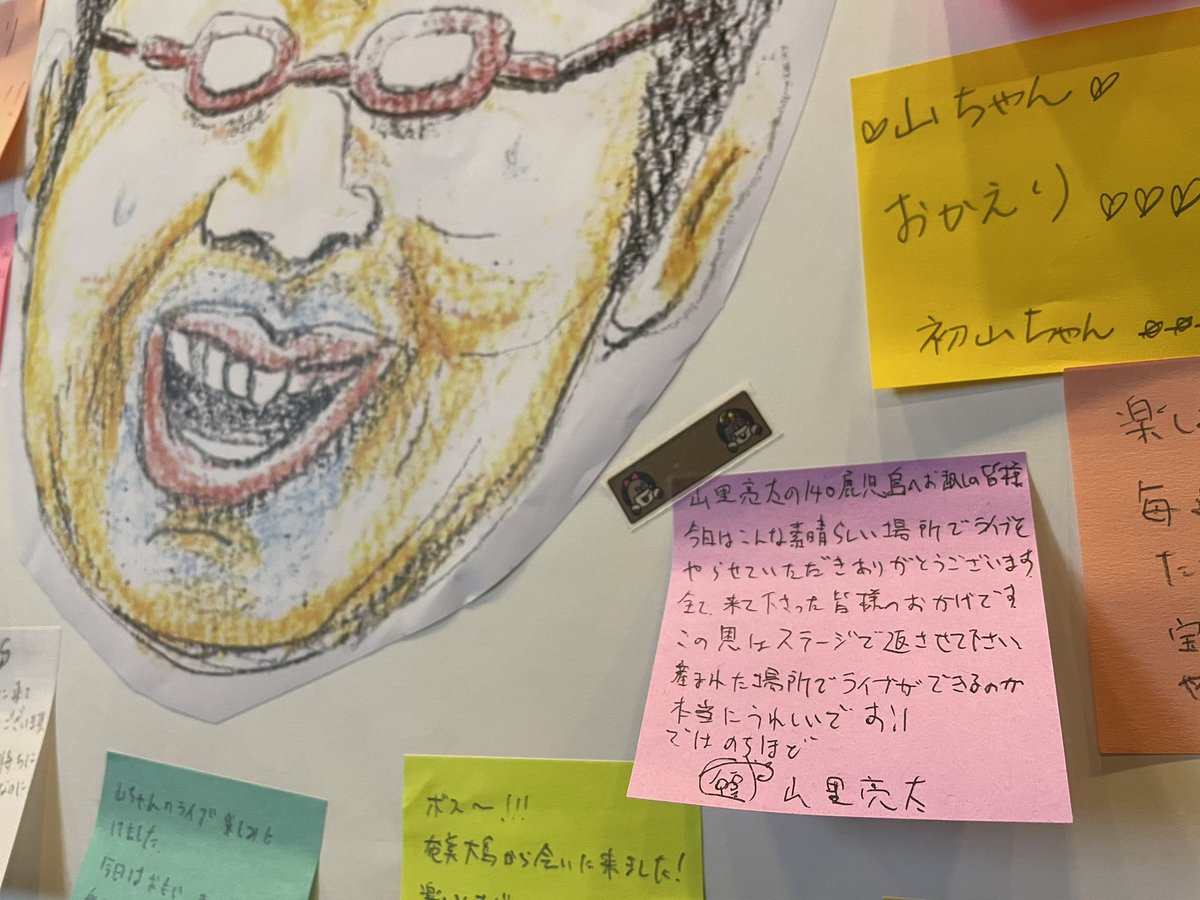 ♡山ちゃん♡
おかえり♡♡♡
初山ちゃん
山里亮太の140鹿児島へお越しの皆様
今日はこんな素晴らしい場所でライブを
やらせていただきありがとうございます
全て、来て下さった皆様のおかげです
この恩はステージで返させて下さい
産まれた場所でライブができるのが
本当にうれしいです!!
ではのちほど
山里亮太
楽し
毎
た
宝
や
山ちゃんのライブ楽しみに
してました
今日は
ボス〜!!!
奄美大島から会いに来ました!